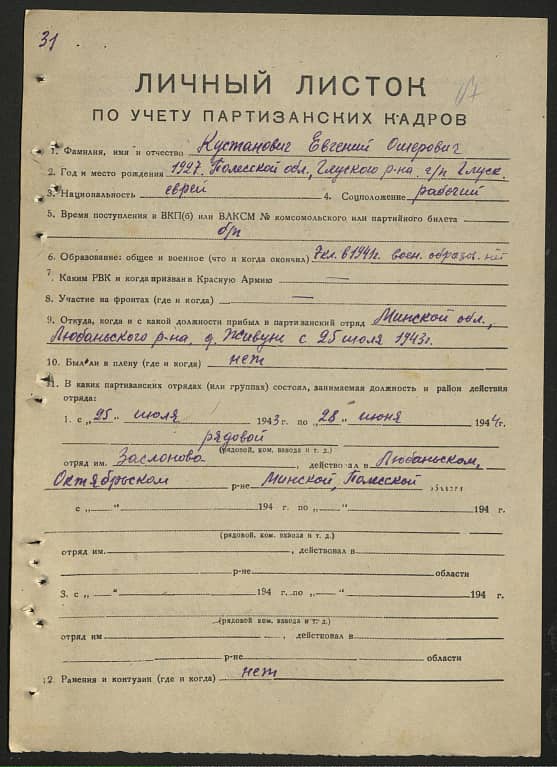 31
17
ЛИЧНЫЙ ЛИСТОК
ПО УЧЕТУ ПАРТИЗАНСКИХ КАДРОВ
1. Фамилия, имя и отчество Кустанович Евгений Ошерович
2. Год и место рождения 1927. Полесской обл., Глуского р-на. г/п Глуск.
3. Национальность еврей 4. Соцположение рабочий
5. Время поступления в ВКП(б) или ВЛКСМ № комсомольского или партийного билета
б/п
6. Образование: общее и военное (что и когда окончил) 7кл. в 1941г. воен. образов. нет
7. Каким РВК и когда призван в Красную Армию —
8. Участие на фронтах (где и когда) —
9. Откуда, когда и с какой должности прибыл в партизанский отряд Минской обл.,
Любаньского р-на, д. Живунь с 25 июля 1943г.
10. Был ли в плену (где и когда) нет
11. В каких партизанских отрядах (или группах) состоял, занимаемая должность и район действия
отряда:
1. с „25“ июля 1943 г. по „28“ июня 1944г.
рядовой
(рядовой, ком. взвода и т. д.)
отряд им. Заслонова, действовал в Любаньском,
Октябрьском р-не Минской, Полесской области
с „ “ 194 г. по „ “ 194 г.
(рядовой, ком. взвода и т. д.)
отряд им. , действовал в
р-не области
3. с „ “ 194 г. по „ “ 194 г.
(рядовой ком. взвода и т. д.)
отряд им , действовал в
р-не области
12. Ранения и контузии (где и когда) нет